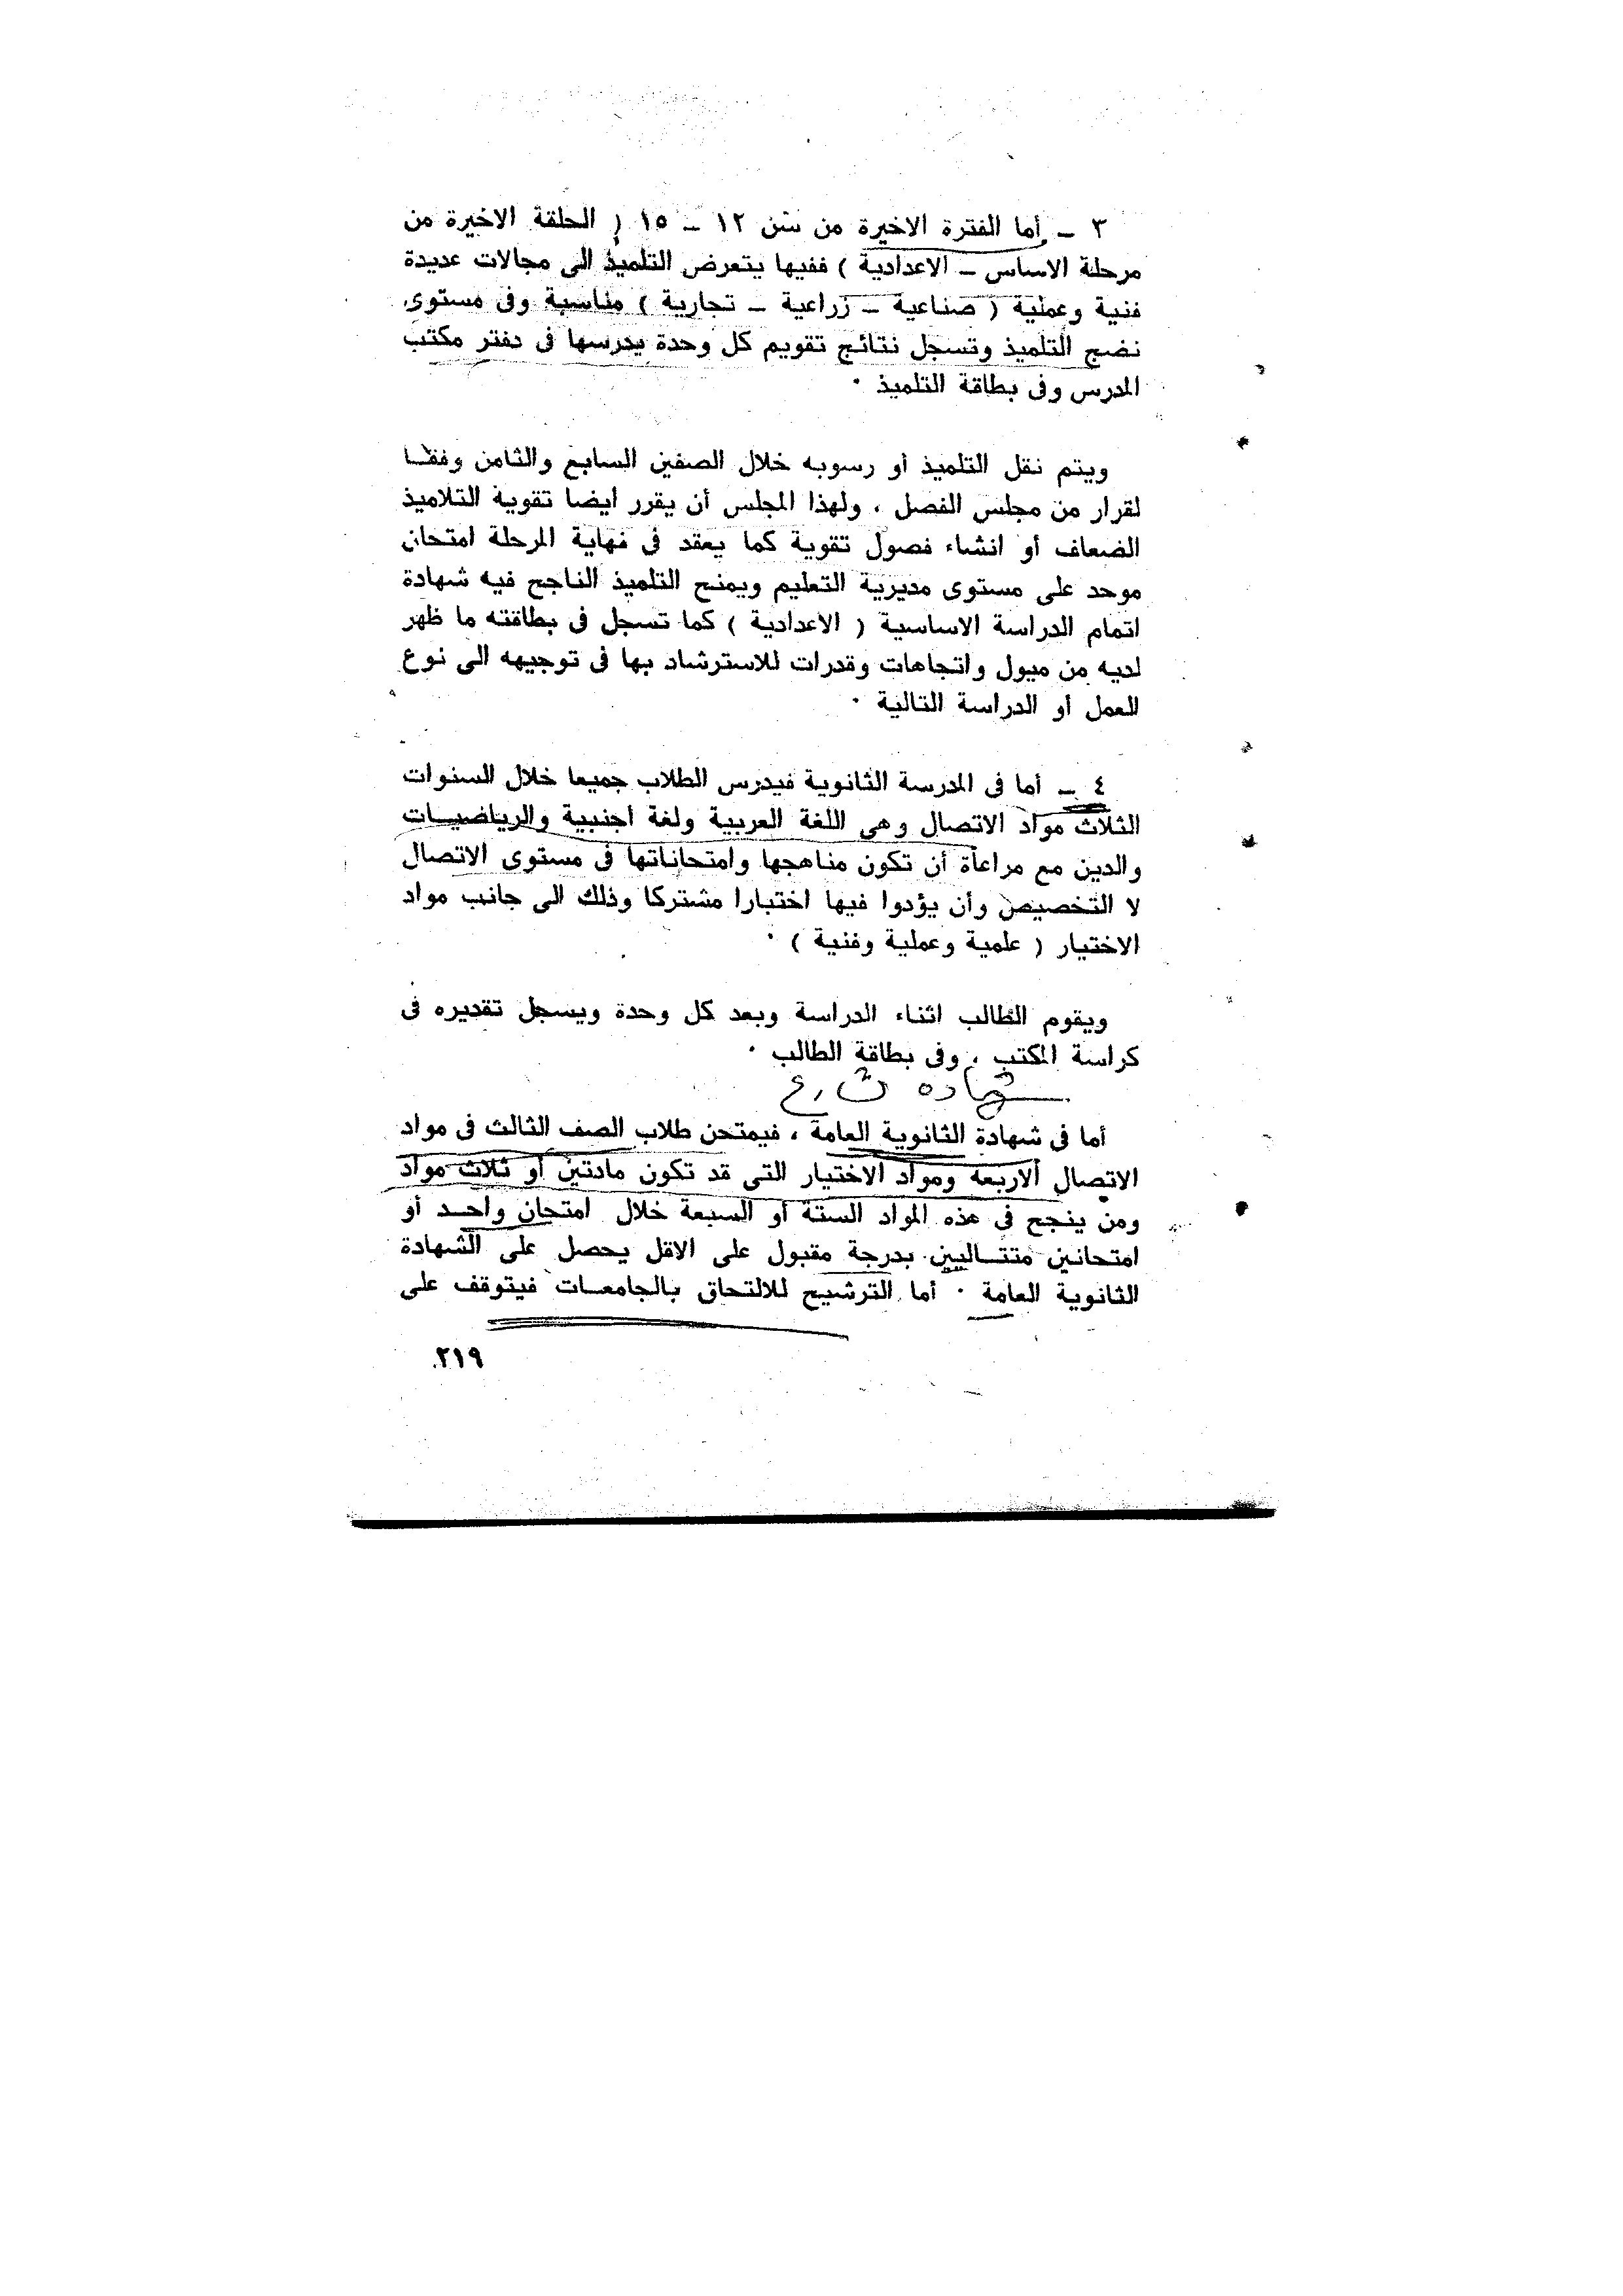 ٣ ــ أما الفترة الاخيرة من سن ١٢ ــ ١٥ ( الحلقة الاخيرة من
مرحلة الاساس ــ الاعدادية ) ففيها يتعرض التلميذ الى مجالات عديدة
فنية وعملية ( صناعية ــ زراعية ــ تجارية ) مناسبة وفى مستوى
نضج التلميذ وتسجل نتائج تقويم كل وحدة يدرسها فى دفتر مكتب
المدرس وفى بطاقة التلميذ ٠
ويتم نقل التلميذ أو رسوبه خلال الصفين السابع والثامن وفقــا
لقرار من مجلس الفصل ، ولهذا المجلس أن يقرر ايضا تقوية التلاميذ
الضعاف أو انشاء فصول تقوية كما يعقد فى نهاية المرحلة امتحان
موحد على مستوى مديرية التعليم ويمنح التلميذ الناجح فيه شهادة
اتمام الدراسة الاساسية ( الاعدادية ) كما تسجل فى بطاقته ما ظهر
لديه من ميول واتجاهات وقدرات للاسترشاد بها فى توجيهه الى نوع
العمل أو الدراسة التالية ٠
٤ ــ أما فى المدرسة الثانوية فيدرس الطلاب جميعا خلال السنوات
الثلاث مواد الاتصال وهى اللغة العربية ولغة أجنبية والرياضيــات
والدين مع مراعاة أن تكون مناهجها وامتحاناتها فى مستوى الاتصال
لا التخصيص وأن يؤدوا فيها اختبارا مشتركا وذلك الى جانب مواد
الاختيار ( علمية وعملية وفنية ) ٠
ويقوم الطالب اثناء الدراسة وبعد كل وحدة ويسجل تقديره فى
كراسة المكتب ، وفى بطاقة الطالب ٠
شهاده ث . ع
أما فى شهادة الثانوية العامة ، فيمتحن طلاب الصف الثالث فى مواد
الاتصال الاربعة ومواد الاختيار التى قد تكون مادتين أو ثلاث مواد
ومن ينجح فى هذه المواد الستة أو السبعة خلال امتحان واحــد أو
امتحانين متتــاليين بدرجة مقبول على الاقل يحصل على الشهادة
الثانوية العامة ٠ أما الترشيح للالتحاق بالجامعــات فيتوقف على
٢١٩